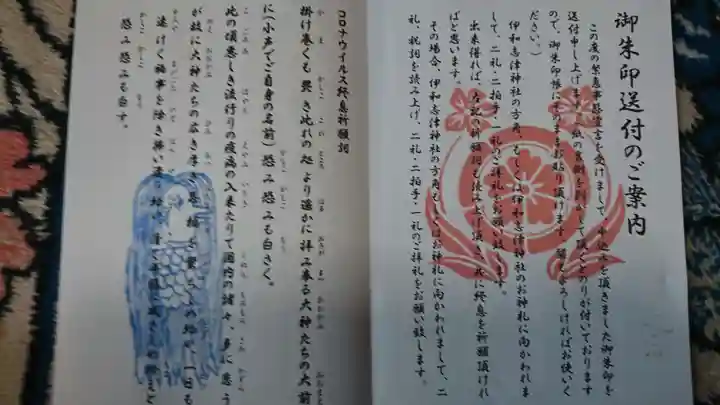 御朱印送付のご案内
この度の緊急事態宣言を受けまして、お申込みを頂きました御朱印を
送付申し上げます。紙の裏側を剥がして頂くとのりが付いております
ので、御朱印帳にそのままお貼り頂けます。宜しければお使いく
ださい。）
伊和志津神社の方角、もしくは伊和志津神社のお神札に向かわれま
して、二礼・二拍手・一礼のご拝礼をお願い致します。
出来得れば、左記の祈願詞も読み上げ頂き、共に終息を祈願頂けれ
ばと思います。
その場合、伊和志津神社の方角もしくはお神札に向かわれまして、二
礼、祝詞を読み上げ、二礼・二拍手・一礼のご拝礼をお願い致します。
コロナウイルス終息祈願詞
掛け巻くも畏き此れの処より遥かに拝み奉る大神たちの大前
に（小声でご自身の名前）恐み恐みも白さく。
此の頃悪しき流行りの疫病の入来たりて国内の諸々、多に思う
が故に大神たちの広き厚き恩頼を賜らしめ給い、一日も
速けく禍事を除き祓い給い
恐み恐みも白す。